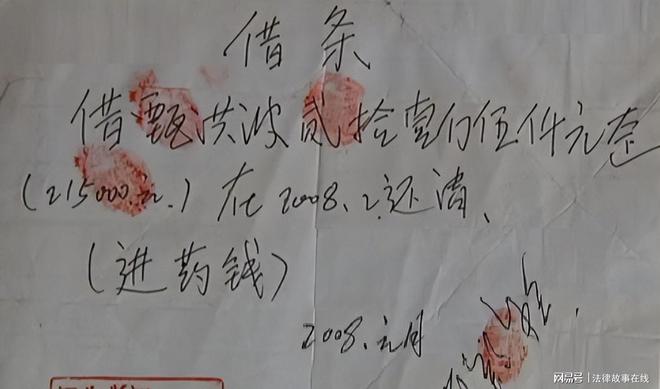 借条
借甄洪波贰拾壹仟伍仟元整
(215000.元.)在2008.2.还清、
(进药钱)
2008.元月
网易号 | 法律故事在线